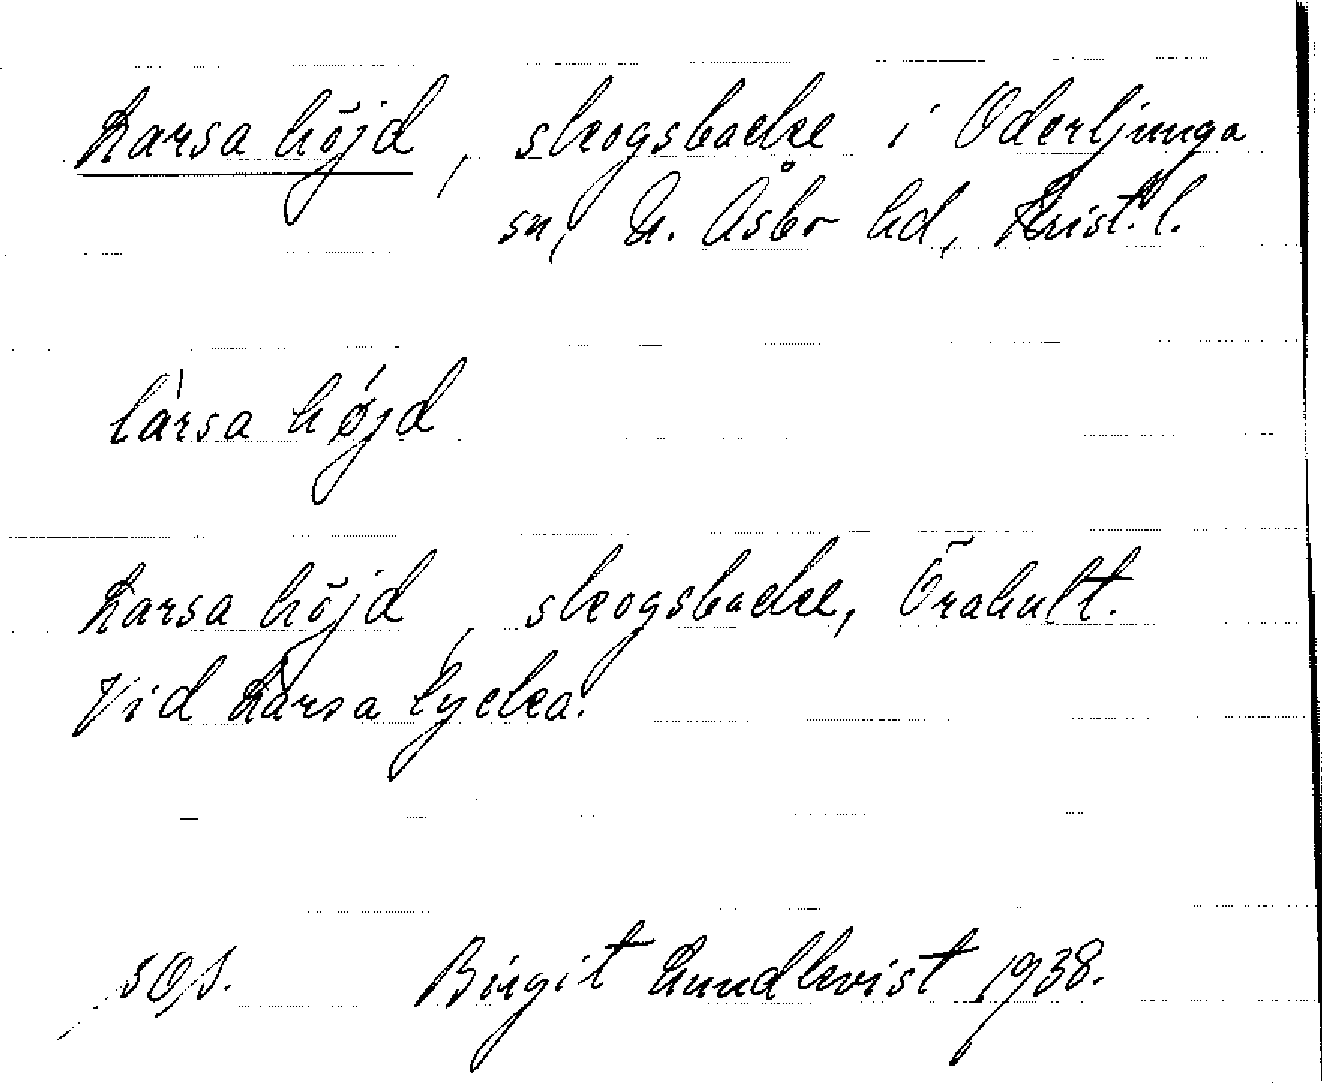 Larsa höjd, skogsbacke i Oderljunga
sn, N. Åsbo hd, Krist. l.
làrsa hǿjd
Larsa höjd, skogsbacke, Örahult.
Vid Larsa lycka.
Birgit Lundkvist 1938.